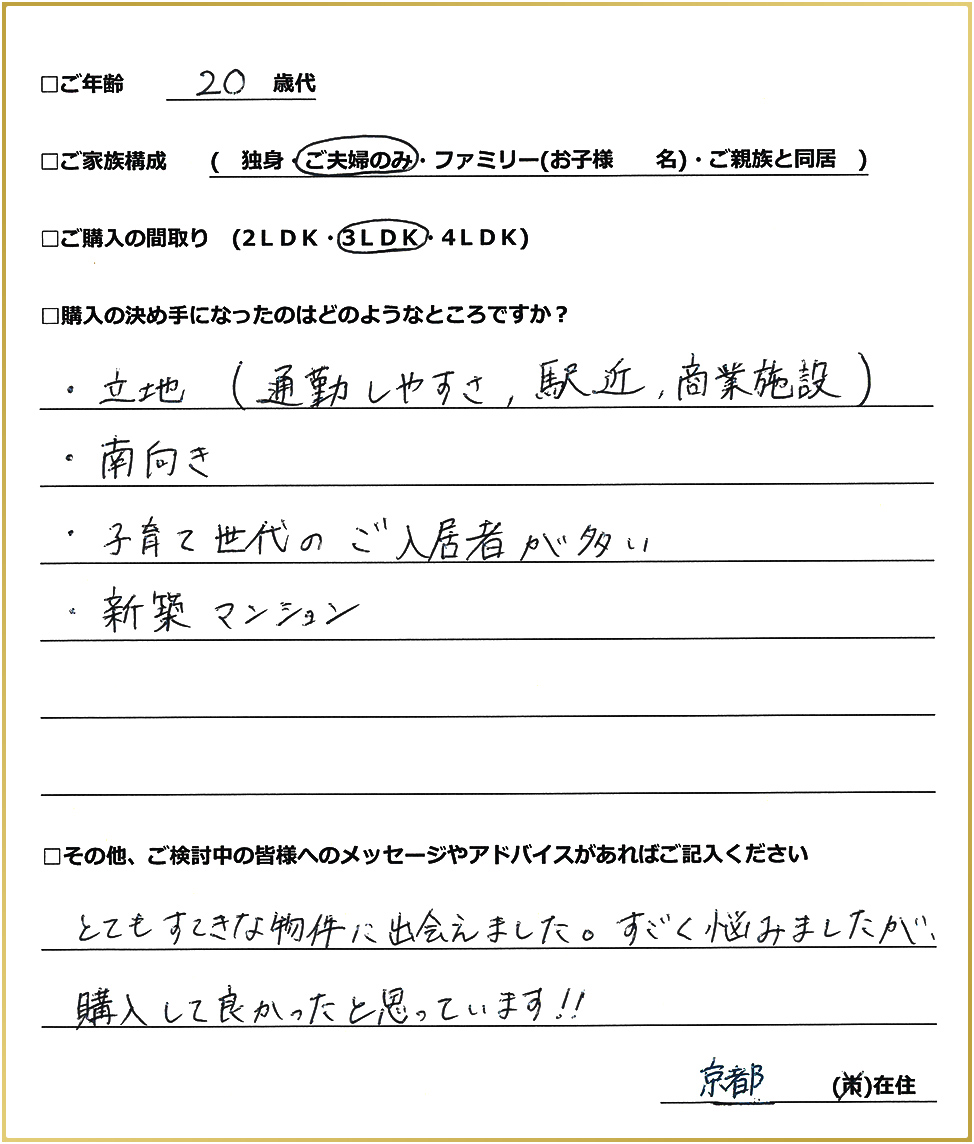 □ご年齢 20 歳代
□ご家族構成 ( 独身・ご夫婦のみ・ファミリー(お子様 名)・ご親族と同居 )
□ご購入の間取り (2LDK・3LDK・4LDK)
□購入の決め手になったのはどのようなところですか?
・立地 (通勤しやすさ, 駅近, 商業施設)
・南向き
・子育て世代の ご入居者が多い
・新築マンション
□その他、ご検討中の皆様へのメッセージやアドバイスがあればご記入ください
とてもすてきな物件に出会えました。すごく悩みましたが、
購入して良かったと思っています!!
京都 ( )在住